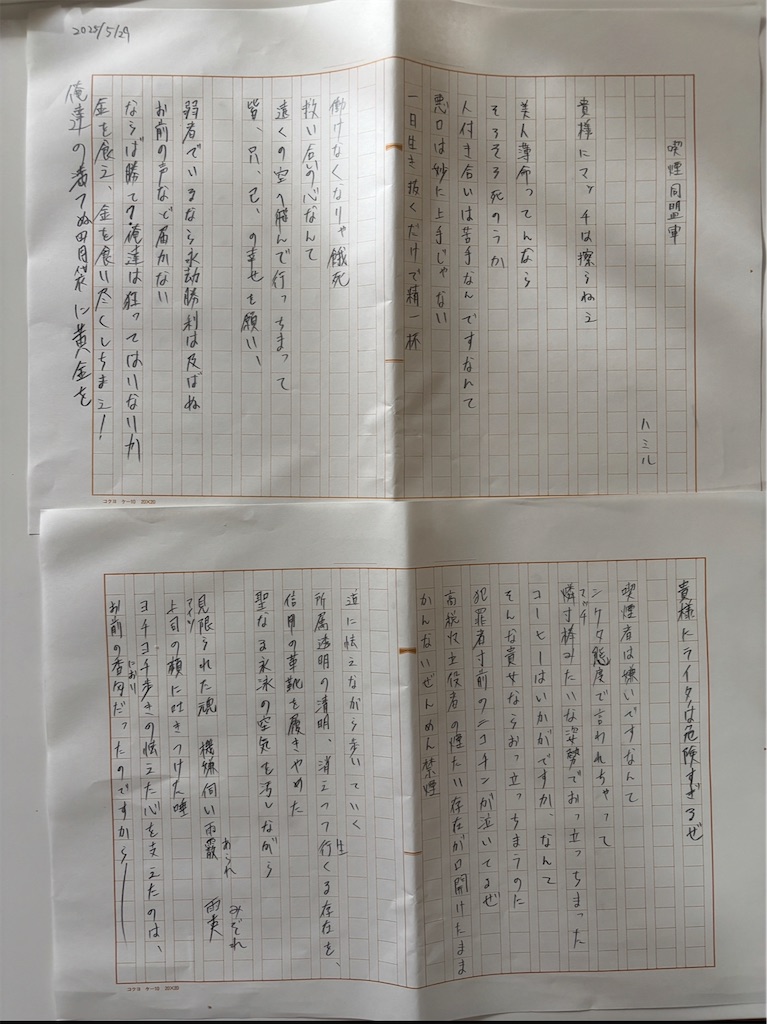 2025/5/29
喫煙同盟軍
ハミル
貴様にマッチは擦らねェ
美人薄命ってんなら
そろそろ死のうか
人付き合いは苦手なんですなんて
悪口は妙に上手じゃない
一日生き抜くだけで精一杯
働けなくなりゃ餓死
救い合いの心なんて
遠くの空へ飛んで行っちまって
皆、只、己、の幸せを願いい、
弱者でいるなら永劫勝利は及ばぬ
お前の声など届かない
ならば勝て?俺達は狂ってはいないか
金を食え、金を食い尽くしちまえ!
俺達の満てぬ胃袋に黄金を
コクヨ ケ-10 20×20
貴様にライタは危険すぎるぜ
喫煙者は嫌いですなんて
ンケタ態度で言われちゃって
マッチ
燐寸棒みたいな姿勢でおっ立っちまった
コーヒーはいかがですか、なんて
そんな貴せならおっ立っちまうのに
犯罪者寸前のニコチンが泣いてるぜ
高税収立役者の煙たい存在が口開けたまま
かんないぜんめん禁煙
道に怯えながら歩いていく
所属透明の清明、消えつつ行くる存在を、
生
信用の革靴を履きやめた
聖なる永泳の空気を汚しながら
見限られた魂 機嫌伺い雨霰 霙
あられ
みぞれ
アイツ
上司の顔に吐きつけた唾
ヨチヨチ歩きの怯えた心を支えたのは、
お前の香りだったのですから――
におい
コクヨ ケ-10 20×20